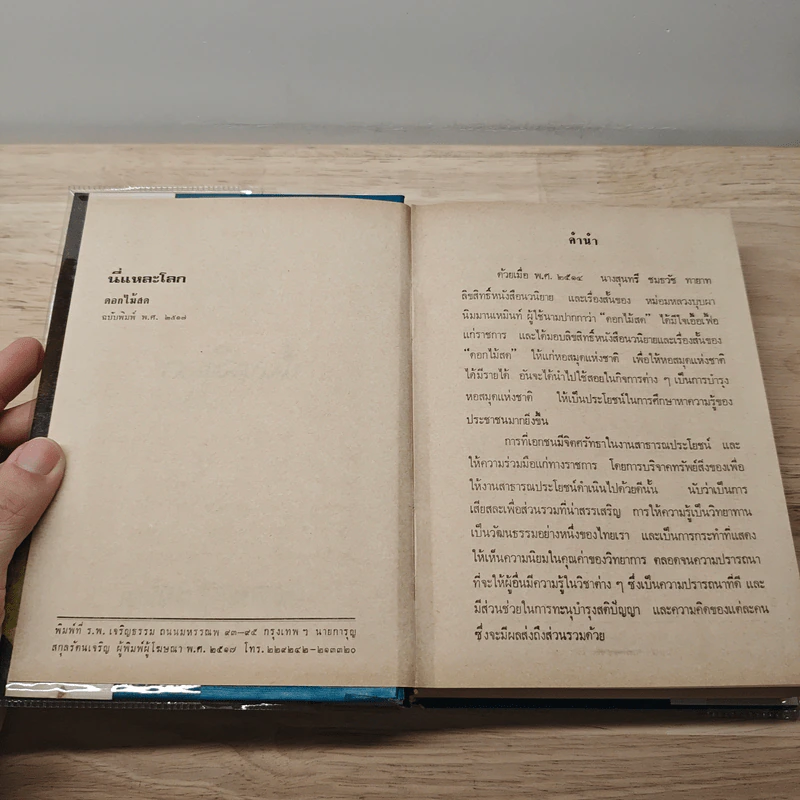 นี่แหละโลก
ดอกไม้สด
ฉบับพิมพ์ พ.ศ. ๒๕๑๗
พิมพ์ที่ ร.พ. เจริญธรรม ถนนมหรรณพ ๙๓–๙๕ กรุงเทพ ฯ นายการุญ
สกุลรัตนเจริญ ผู้พิมพ์ผู้โฆษณา พ.ศ. ๒๕๑๗ โทร. ๒๒๙๒๔๒–๒๑๓๓๒๐
คำนำ
ด้วยเมื่อ พ.ศ. ๒๕๑๔ นางสุนทรี ชมธวัช ทายาท
ลิขสิทธิ์หนังสือนวนิยาย และเรื่องสั้นของ หม่อมหลวงบุบผา
นิมมานเหมินท์ ผู้ใช้นามปากกาว่า “ดอกไม้สด” ได้มีใจเอื้อเฟื้อ
แก่ราชการ และได้มอบลิขสิทธิ์หนังสือนวนิยายและเรื่องสั้นของ
“ดอกไม้สด” ให้แก่หอสมุดแห่งชาติ เพื่อให้หอสมุดแห่งชาติ
ได้มีรายได้ อันจะได้นำไปใช้สอยในกิจการต่าง ๆ เป็นการบำรุง
หอสมุดแห่งชาติ ให้เป็นประโยชน์ในการศึกษาหาความรู้ของ
ประชาชนมากยิ่งขึ้น
การที่เอกชนมีจิตศรัทธาในงานสาธารณประโยชน์ และ
ให้ความร่วมมือแก่ทางราชการ โดยการบริจาคทรัพย์สิ่งของเพื่อ
ให้งานสาธารณประโยชน์ดำเนินไปด้วยดีนั้น นับว่าเป็นการ
เสียสละเพื่อส่วนรวมที่น่าสรรเสริญ การให้ความรู้เป็นวิทยาทาน
เป็นวัฒนธรรมอย่างหนึ่งของไทยเรา และเป็นการกระทำที่แสดง
ให้เห็นความนิยมในคุณค่าของวิทยาการ ตลอดจนความปรารถนา
ที่จะให้ผู้อื่นมีความรู้ในวิชาต่าง ๆ ซึ่งเป็นความปรารถนาที่ดี และ
มีส่วนช่วยในการทะนุบำรุงสติปัญญา และความคิดของแต่ละคน
ซึ่งจะมีผลส่งถึงส่วนรวมด้วย